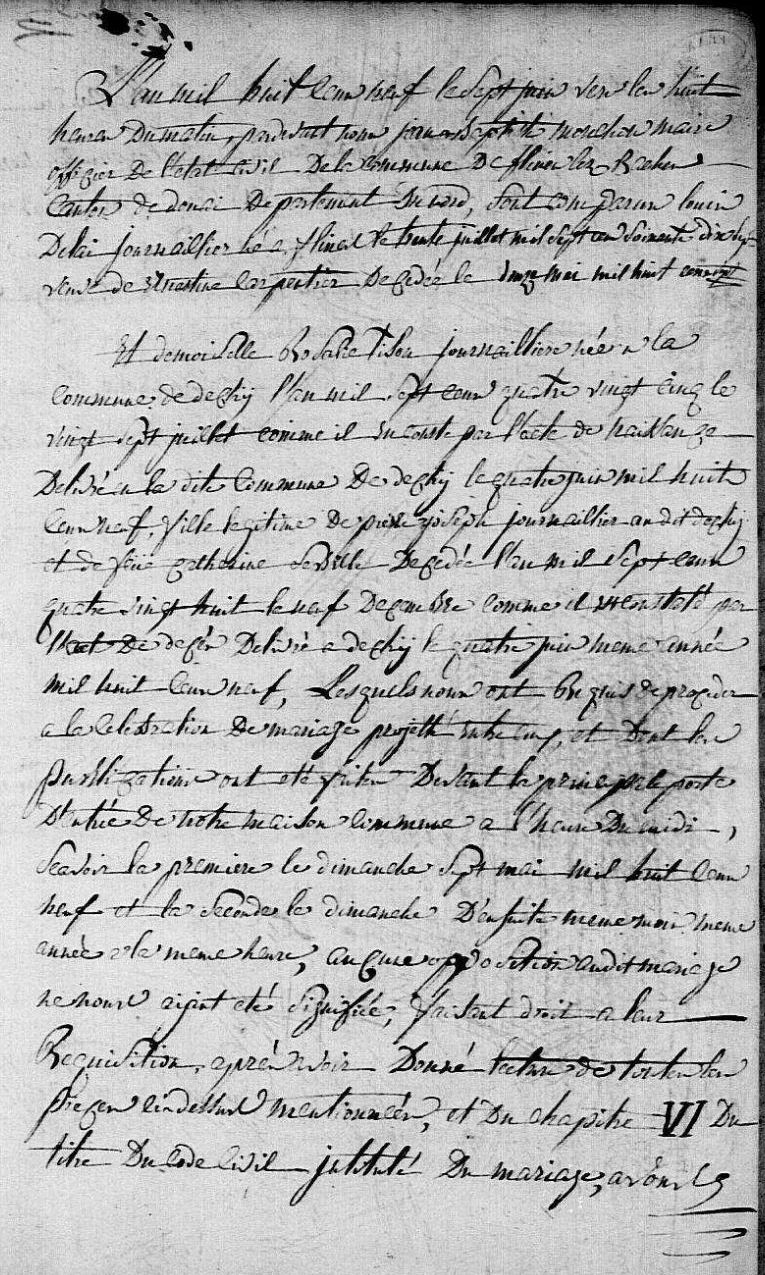 L'an mil huit cens neuf le sept juin vers les huit
heures du matin, pardevant nous jean baptiste monchon maire
officier De l'etat civil De la commune De flines lez Raches
canton de douai Departement du nord, sont comparus louis
Delai journaillier né a flines le trente juillet mil sept cens soixante dix sept
veuf de Ernestine carpentier Decedée le onze mai mil huit cens sept
Et demoiselle Rosalie Tison journailliere née a la
commune de dechy l'an mil sept cens quatre vingt cinq le
vingt sept juillet comme il en conste par l'acte de naissance
Delivré a la dite commune De dechy le quatre juin mil huit
cens neuf, fille legitime De pierre joseph journaillier au dit dechy
et de feüe catherine Decedée l'an mil sept cens
quatre vingt huit le neuf Decembre comme il est constaté par
l'act De decés Delivré a dechy le quatre juin meme année
mil huit cens neuf, Lesquels nous ont Requis de proceder
a la Celebration De mariage projetté entre eux, et Dont les
publications ont eté faites Devant la principale porte
D'entrée De notre maison commune a l'heure Du midi,
Scavoir la premiere le dimanche sept mai mil huit cens
neuf et la Seconde le dimanche D'ensuite meme mois meme
année a la meme heure, aucune opposition audit mariage
ne nous aiant eté Signifiée, faisant droit a leur
Requisition, aprés avoir Donné lecture de toutes les
pieces ci dessus mentionnées, et Du chapitre VI Du
titre Du code Civil intitulé Du mariage, avons